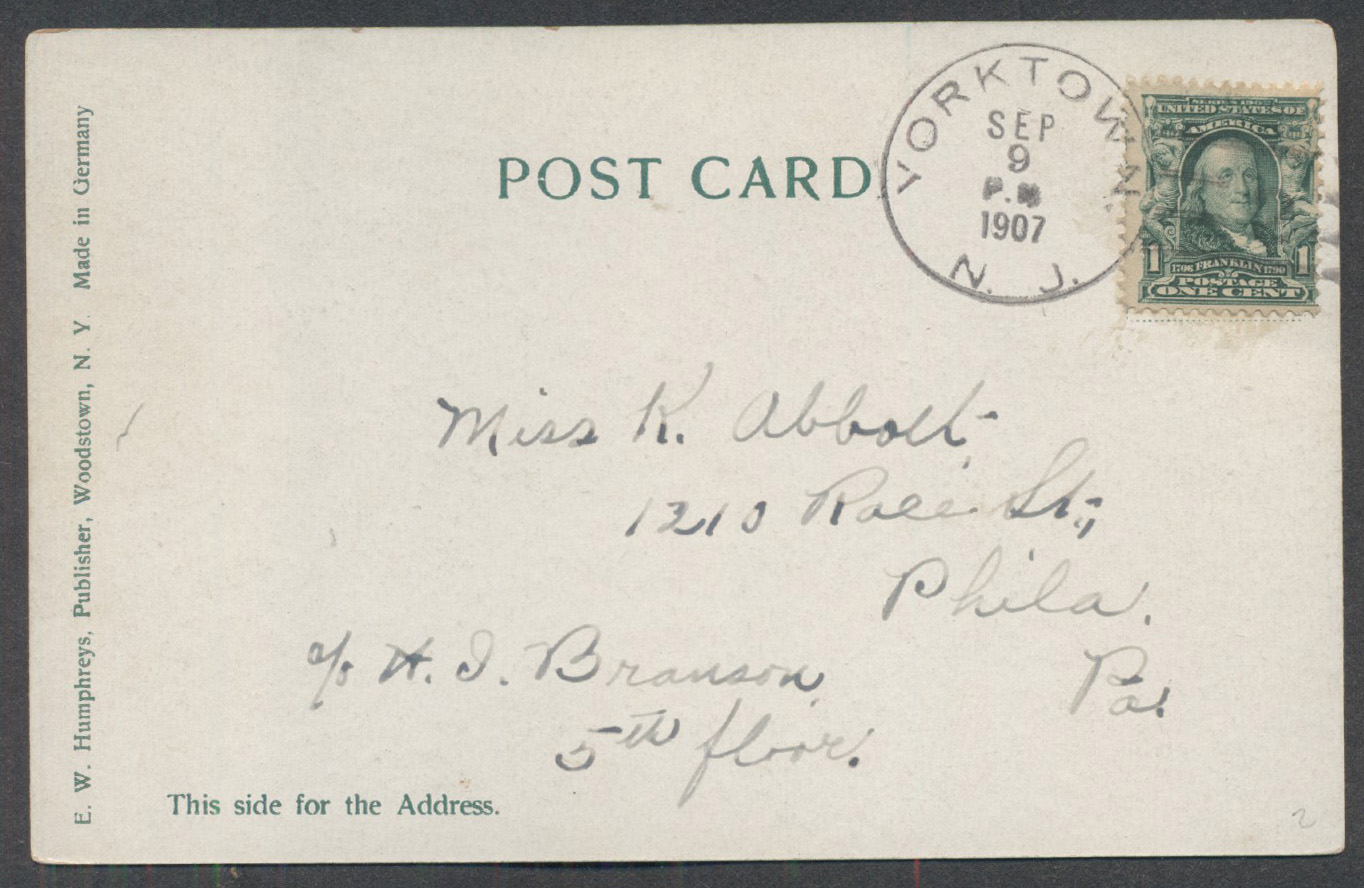 POST CARD
YORKTOWN
SEP
9
P.M
1907
N. J.
SERIES 1902
UNITED STATES OF
AMERICA
1 1
1706 FRANKLIN 1790
POSTAGE
ONE CENT
Miss K. Abbott
1210 Race St.,
Phila.
Pa.
c/o H. I. Branson
5th floor.
This side for the Address.
E. W. Humphreys, Publisher, Woodstown, N. Y. Made in Germany
2